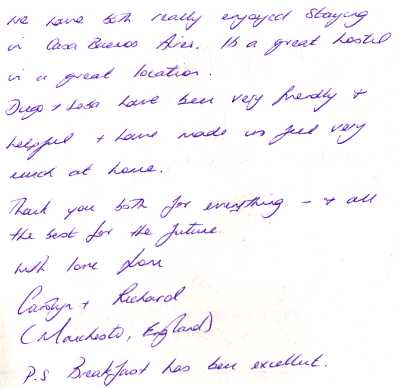 We have both really enjoyed staying
in Casa Buenos Aires. Its a great hostel
in a great location.
Diego + have been very friendly +
helpful + have made us feel very
much at home.
Thank you both for everything – + all
the best for the future
with love from
Carolyn + Richard
(Manchester, England)
P.S Breakfast has been excellent.